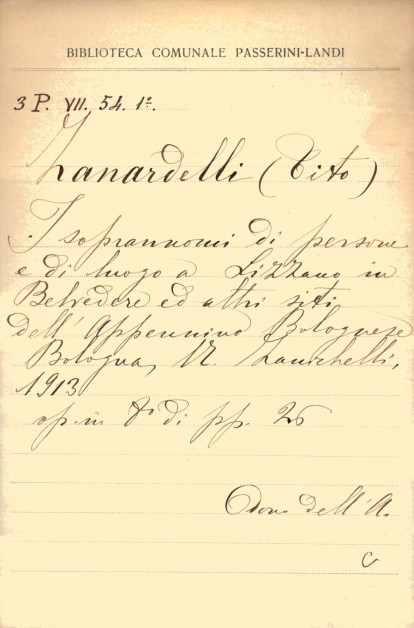 BIBLIOTECA COMUNALE PASSERINI-LANDI
3 P. VII. 54. 1º.
Zanardelli (Tito)
I soprannomi di persone
e di luogo a Lizzano in
Belvedere ed altri siti
dell'Appennino Bolognese
Bologna, N. Zanichelli,
1913
op. in 8º di pp. 26
Dono dell'A.
C